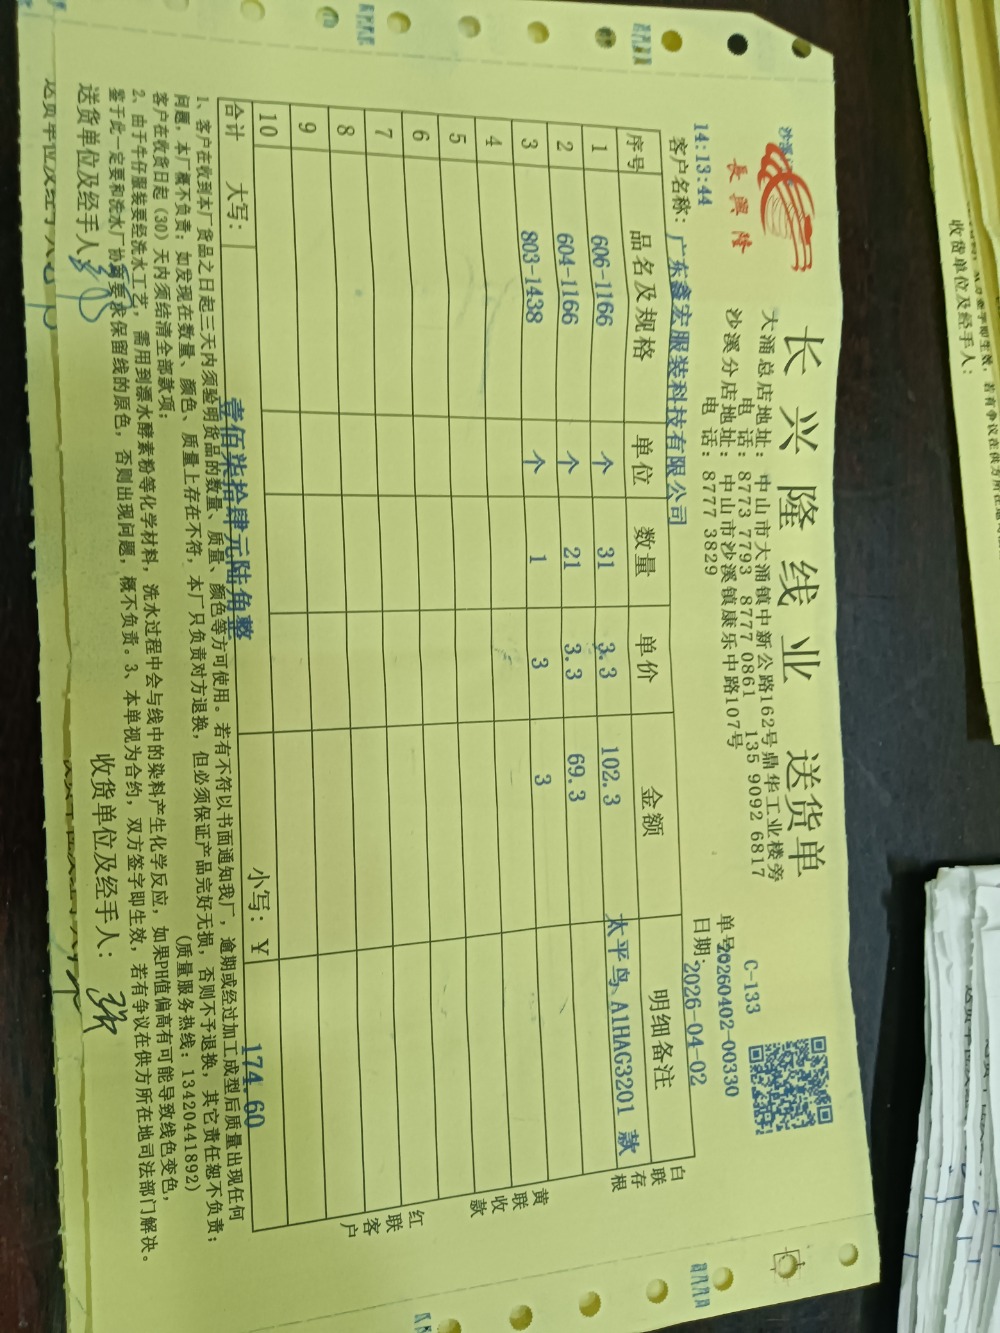 长兴隆线业 送货单
沙溪
長興隆
大涌总店地址：中山市大涌镇中新公路162号鼎华工业楼旁
电 话：8773 7793 8777 0861 135 9092 6817
沙溪分店地址：中山市沙溪镇康乐中路107号
电 话：8777 3829
C-133
单号：20260402-00330
14:13:44
客户名称：广东鑫宏服装科技有限公司
日期：2026-04-02
序号 品名及规格 单位 数量 单价 金额 明细备注
1 606-1166 个 31 3.3 102.3 太平鸟、A1HAG3201 款
2 604-1166 个 21 3.3 69.3
3 803-1438 个 1 3 3
4
5
6
7
8
9
10
合计 大写：壹佰柒拾肆元陆角整 小写：￥ 174.60
白联存根
黄联收款
红联客户
1、客户在收到本厂货品之日起三天内须验明货品的数量、质量、颜色等方可使用。若有不符以书面通知我厂，逾期或经过加工成型后质量出现任何
问题，本厂概不负责；如发现在数量、颜色、质量上存在不符，本厂只负责对方退换，但必须保证产品完好无损，否则不予退换，其它责任恕不负责；
客户在收货日起（30）天内须结清全部款项；
（质量服务热线：13420441892）
2、由于牛仔服装要经洗水工艺，需用到漂水酵素粉等化学材料，洗水过程中会与线中的染料产生化学反应，如果PH值偏高有可能导致线色变色，
鉴于此一定要和洗水厂协商要求保留线的原色，否则出现问题，概不负责。3、本单视为合约，双方签字即生效，若有争议在供方所在地司法部门解决。
送货单位及经手人：
收货单位及经手人：
送货单位及经手人
收货单位及经手人：